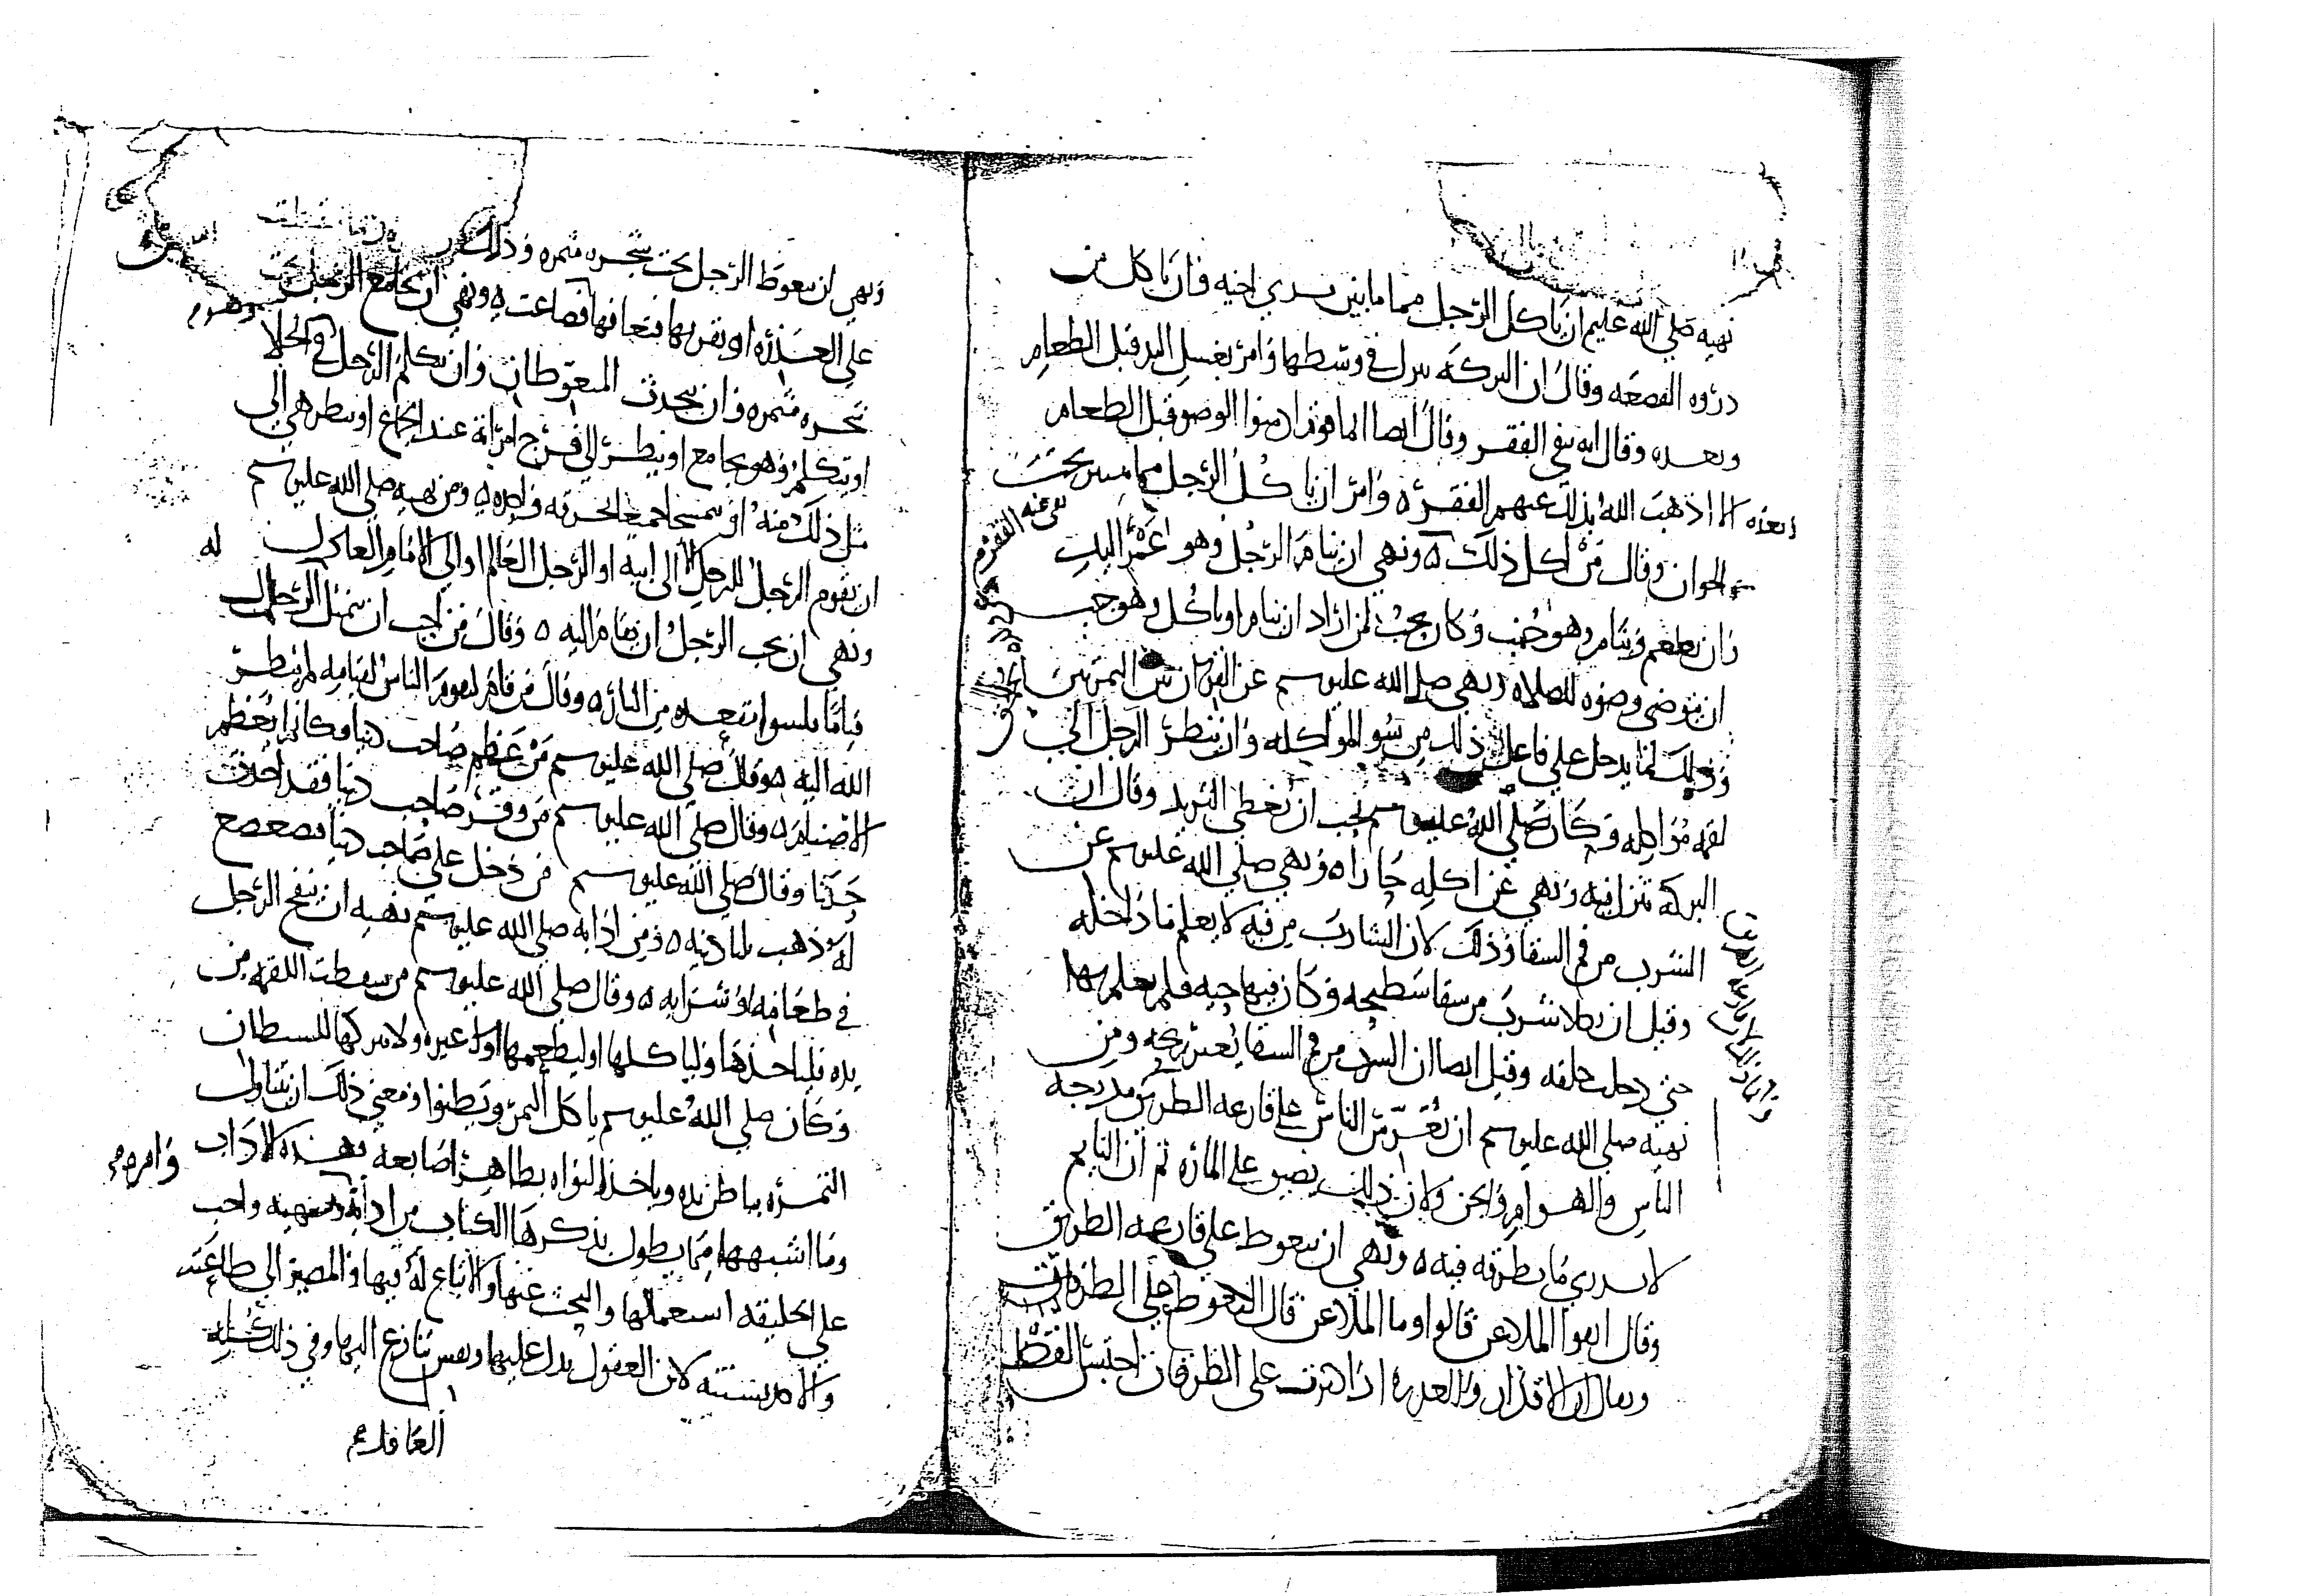 نهيه صلى الله عليه وسلم ان ياكل الرجل مما مابين يدي اخيه وان ياكل من
ذروه القصعه وقال ان البركه تنزل في وسطها وامر بغسل اليد قبل الطعام
وبعده وقال انه ينفي الفقر وقال ايضا ايما قوم ادمنوا الوضو قبل الطعام
وبعده الا اذهب الله بذلك عنهم الفقر ه وامر ان ياكل الرجل مما تحت
الخوان وقال من اكل ذلك ه ونهي ان ينام الرجل وهو اغمر اليد
نفي عنه الفقر
وان يطعم وينام وهو جنب وكان يحب لمن اراد ان ينام او ياكل وهو جنب
ان يتوضى وضوه للصلاه ونهي صلى الله عليه وسلم عن القران بين التمرتين
وذلك لما يدخل على فاعل ذلك من سو المواكله وان ينظر الرجل الى
لقمه مواكله وكان صلى الله عليه وسلم يحب ان يغطي الثريد وقال ان
البركه تنزل فيه ونهي عن اكله حارا ه ونهي صلى الله عليه وسلم عن
الشرب من في السقا وذلك لان الشارب من فيه لا يعلم ما داخله
وقيل ان رجلا شرب من سقا سطيحه وكان فيها حيه فلم يعلم بها
حتى دخلت حلقه وقيل ايضا ان الشرب من في السقا يغير ريحه ومن
نهيه صلى الله عليه وسلم ان يعرس الناس على قارعه الطريق مدرجه
الناس والهوام والجن ولان ذلك يضيق على الماره ثم ان النايم
لا يدري ما يطرقه فيه ه ونهي ان يتغوط على قارعه الطريق
وقال اتقوا الملاعن قالوا وما الملاعن قال التغوط على الطرقات
ويقال ان الاقذار والعذره اذا كثرت على الطرقات احتبس القطر
ونهي ان يتغوط الرجل تحت شجره مثمره وذلك
على العذره او يقربها فتعافها فضاعت ه ونهي ان يجامع الرجل تحت
شجره مثمره وان يتحدث المتغوطان وان يتكلم الرجل في الخلا
او يتكلم وهو يجامع او ينظر الى فرج امراته عند الجماع او تنظر هي الى
مثل ذلك منه او يتمسحا جميعا بخرقه واحده ه ومن نهيه صلى الله عليه وسلم
ان يقوم الرجل للرجل الا الى ابيه او الرجل العالم او الى الامام العادل
ونهي ان يحب الرجل ان يقام اليه ه وقال من احب ان يتمثل الرجال له
قياما فليتبوا مقعده من النار ه وقال من قام ليقوم الناس لقيامه لم ينظر
الله اليه ه وقال صلى الله عليه وسلم من عظم صاحب دنيا فكانما يعظم
الاصنام ه وقال صلى الله عليه وسلم من وقر صاحب دنيا فقد احدث
حدثا وقال صلى الله عليه وسلم من دخل على صاحب دنيا فتضعضع
له ذهب ثلثا دينه ه ومن ادابه صلى الله عليه وسلم نهيه ان ينفخ الرجل
في طعامه او شرابه ه وقال صلى الله عليه وسلم من سقطت اللقمه من
يده فلياخذها ولياكلها او ليطعمها غيره ولا يتركها للشيطان
وكان صلى الله عليه وسلم ياكل التمر ومعنى ذلك ان يتناول
التمره بباطن يده وياخذ النواه بظاهر اصابعه فهذه الاداب
وما اشبهها مما يطول بذكرها الكتاب من ادابه ونهيه وامره واجب
على الخليقه استعمالها والبحث عنها والاتباع له فيها والمصير الى طاعته
والامر بسنته لان العقول تدل عليها والنفس تنازع اليها وفي ذلك كله
العافيه